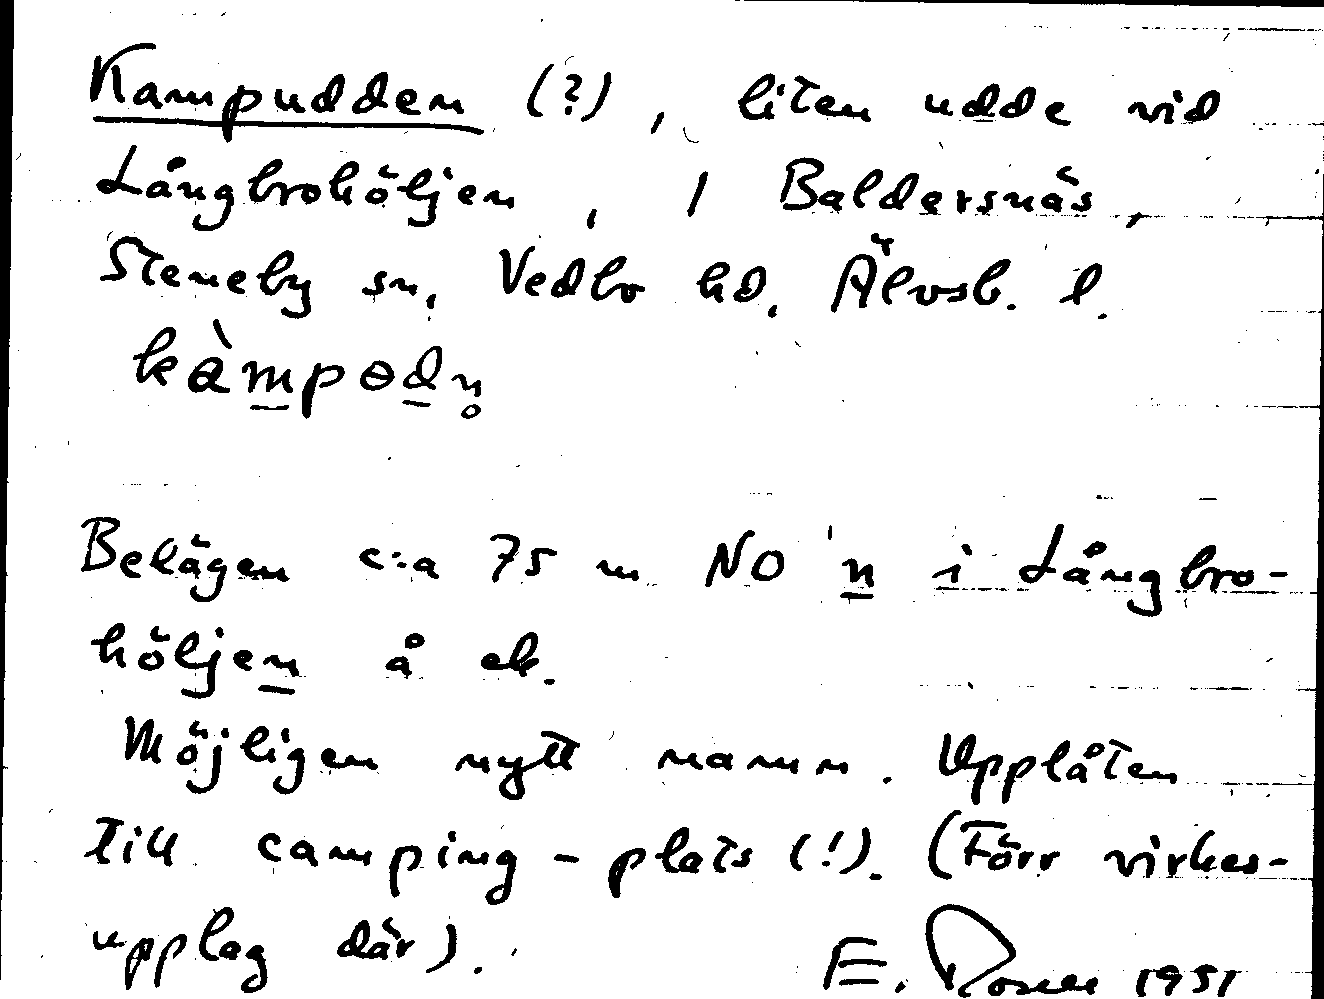 Kampudden (?), liten udde vid
Långbrohöljen, i Baldersnäs,
Steneby sn, Vedbo hd. Älvsb. l.
kàmpɵdn̥
Belägen c:a 75 m NO 'n i Långbro-
höljen å ek.
Möjligen nytt namn. Upplåten
till camping-plats (!). (Förr virkes-
upplag där).
E. Rosell 1951